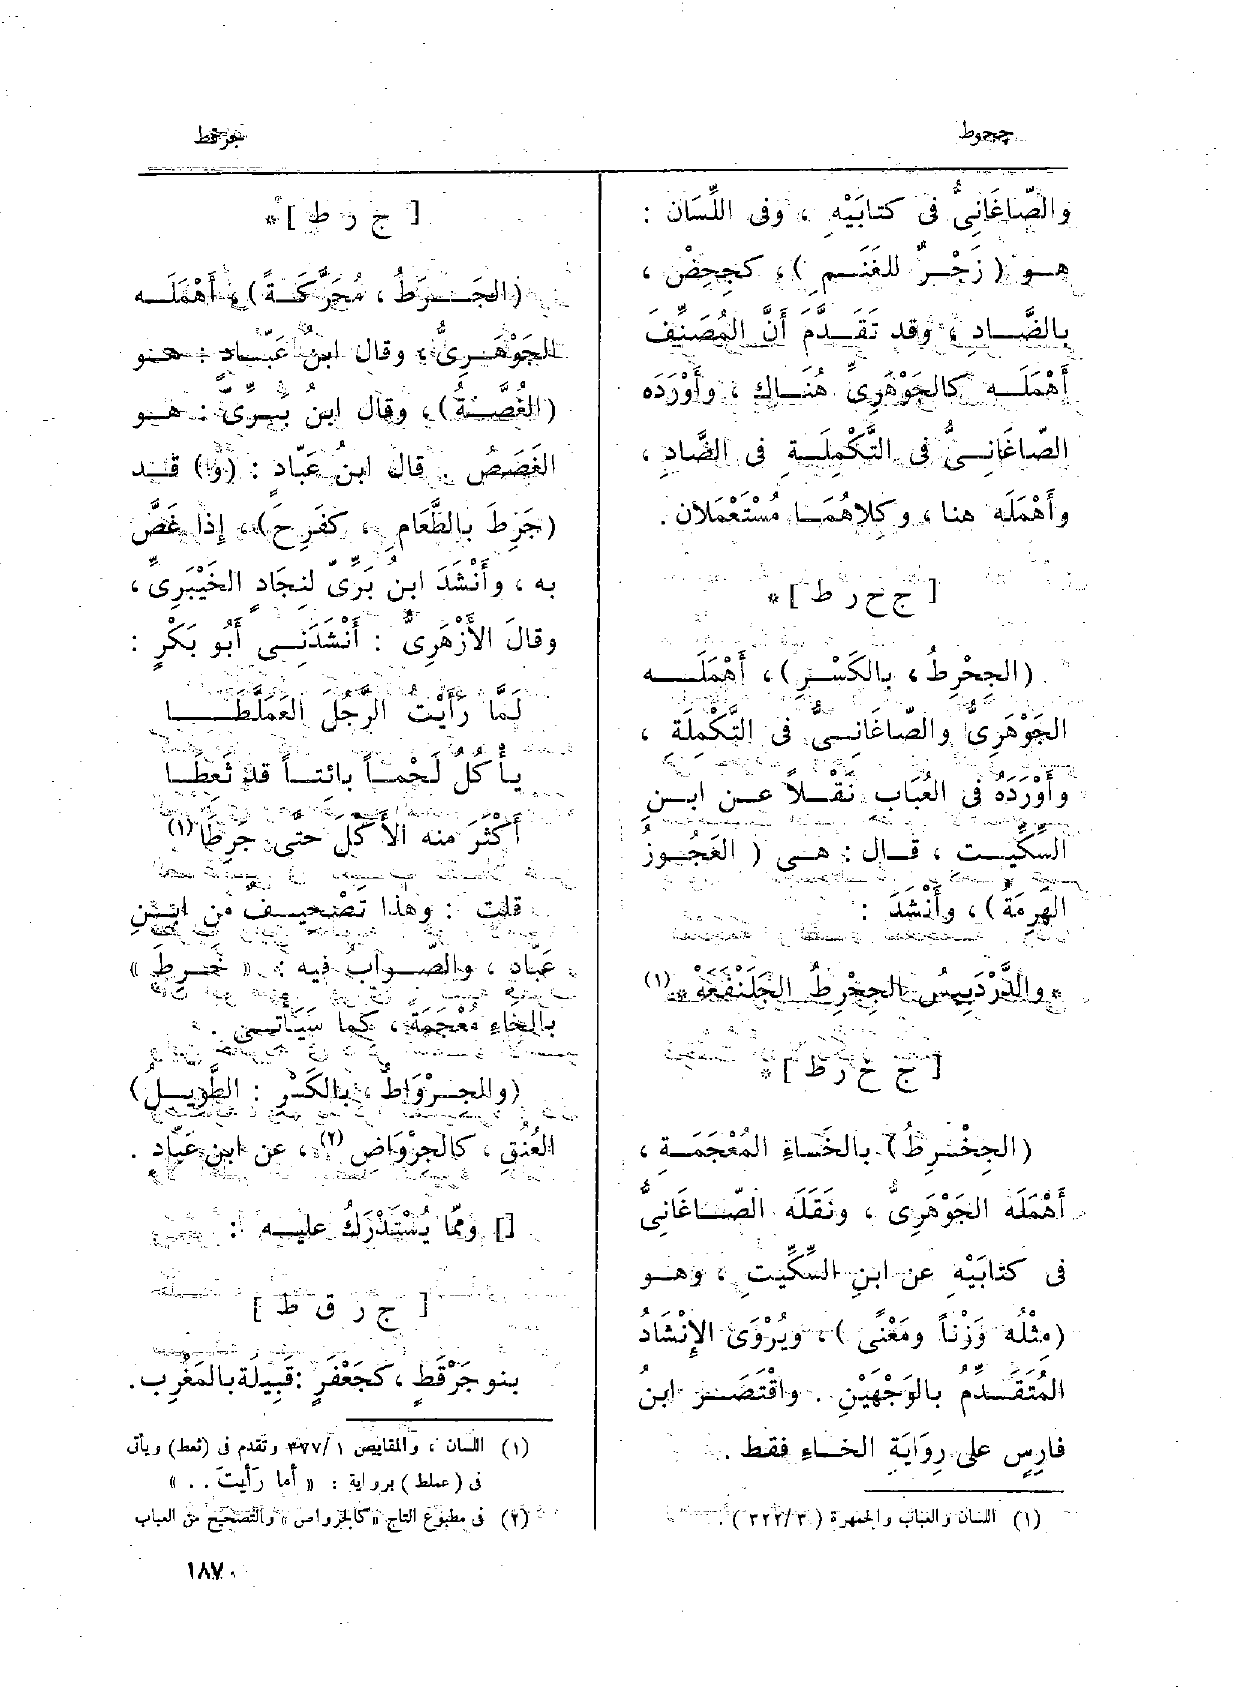 جحرط
جرقط
والصّاغَانِىُّ فى كتابَيْهِ ، وفى اللِّسَان :
هـو (زَجْـرٌ للغَنَـم) ، كجِحِضْ ،
بالضَّـادِ ، وقد تَقَـدَّمَ أَنَّ المُصَنِّفَ
أَهْمَلَـه كالجَوْهَرِىِّ هُنَـاك ، وأَوْرَدَه
الصّاغَانِـىُّ فى التَّكْمِلَـةِ فى الضَّادِ ،
وأَهْمَلَه هنا ، وكِلاهُمَـا مُسْتَعْمَلان .
[ ج ح ر ط ] *
(الجِحْرِطُ ، بالكَسْـرِ) ، أَهْمَلَــه
الجَوْهَرِىُّ والصّاغَانِـىُّ فى التَّكْمِلَة ،
وأَوْرَدَهُ فى العُبَاب نَقْـلاً عـن ابـن
السِّكِّيـت ، قـال : هـى (العَجُـوزُ
الهَرِمَةُ) ، وأَنْشَدَ :
* والدَّرْدَبِيسُ الجِحْرِطُ الجَلَنْفَعَهْ * (١)
[ ج خ ر ط ] *
(الجِخْـرِطُ) بالخَـاءِ المُعْجَمَـةِ ،
أَهْمَلَه الجَوْهَرِىُّ ، ونَقَلَه الصّـاغَانِىُّ
فى كتابَيْهِ عن ابنِ السِّكِّيتِ ، وهـو
(مِثْلُه وَزْناً ومَعْنًى) ، ويُرْوَى الإِنْشَادُ
المُتَقَـدِّم بالوَجْهَيْنِ . واقْتَصَـر ابنُ
فارِسٍ على رِوَايَةِ الخـاءِ فقط .
(١) اللسان والعباب والجمهرة (٣٢٢/٣) .
[ ج ر ط ] *
(الجَــرَطُ ، مُحَرَّكَـةً) ، أَهْمَلَـه
الجَوْهَـرِىُّ ، وقال ابنُ عَبّـادٍ : هـو
(الغُصَّـةُ) ، وقال ابنُ بَـرِّىّ : هـو
الغَصَصُ . قال ابنُ عَبّادٍ : (و) قَـد
(جَرِطَ بالطَّعَامِ ، كفَرِحَ) ، إِذا غَصَّ
به ، وأَنْشَدَ ابنُ بَرِّىّ لنِجَادٍ الخَيْبَرِىِّ ،
وقالَ الأَزْهَرِىُّ : أَنْشَدَنِـى أَبُو بَكْرٍ :
لَمَّا رَأَيْتُ الرَّجُلَ العَمَلَّطَــا
يـأْكُلُ لَحْمـاً بائتـاً قد ثَعِطَـا
أَكْثَرَ منه الأَكْلَ حتّى جَرِطَا (١)
قلت : وهذا تَصْحِيـف من ابـنِ
عَبّادٍ ، والصّـوابُ فيه : « خَـرِطَ »
بالخاءِ مُعْجَمَة ، كما سَيَأْتـى .
(والجِـرْوَاطُ ، بالكَسْر : الطَّوِيـلُ)
العُنُقِ ، كالجِرْوَاضِ (٢) ، عن ابن عَبّاد .
[] وممّا يُسْتَدْرَكُ عليـه :
[ ج ر ق ط ]
بنو جَرْقَطٍ ، كجَعْفَرٍ : قَبِيلَة بالمَغْرِب .
(١) اللسان ، والمقاييس ٣٧٧/١ وتقدم فى (ثعط) ويأتى
فى (عملط) برواية : « أما رَأَيتَ . . »
(٢) فى مطبوع التاج « كالجزواص » والتصحيح من العباب
١٨٧